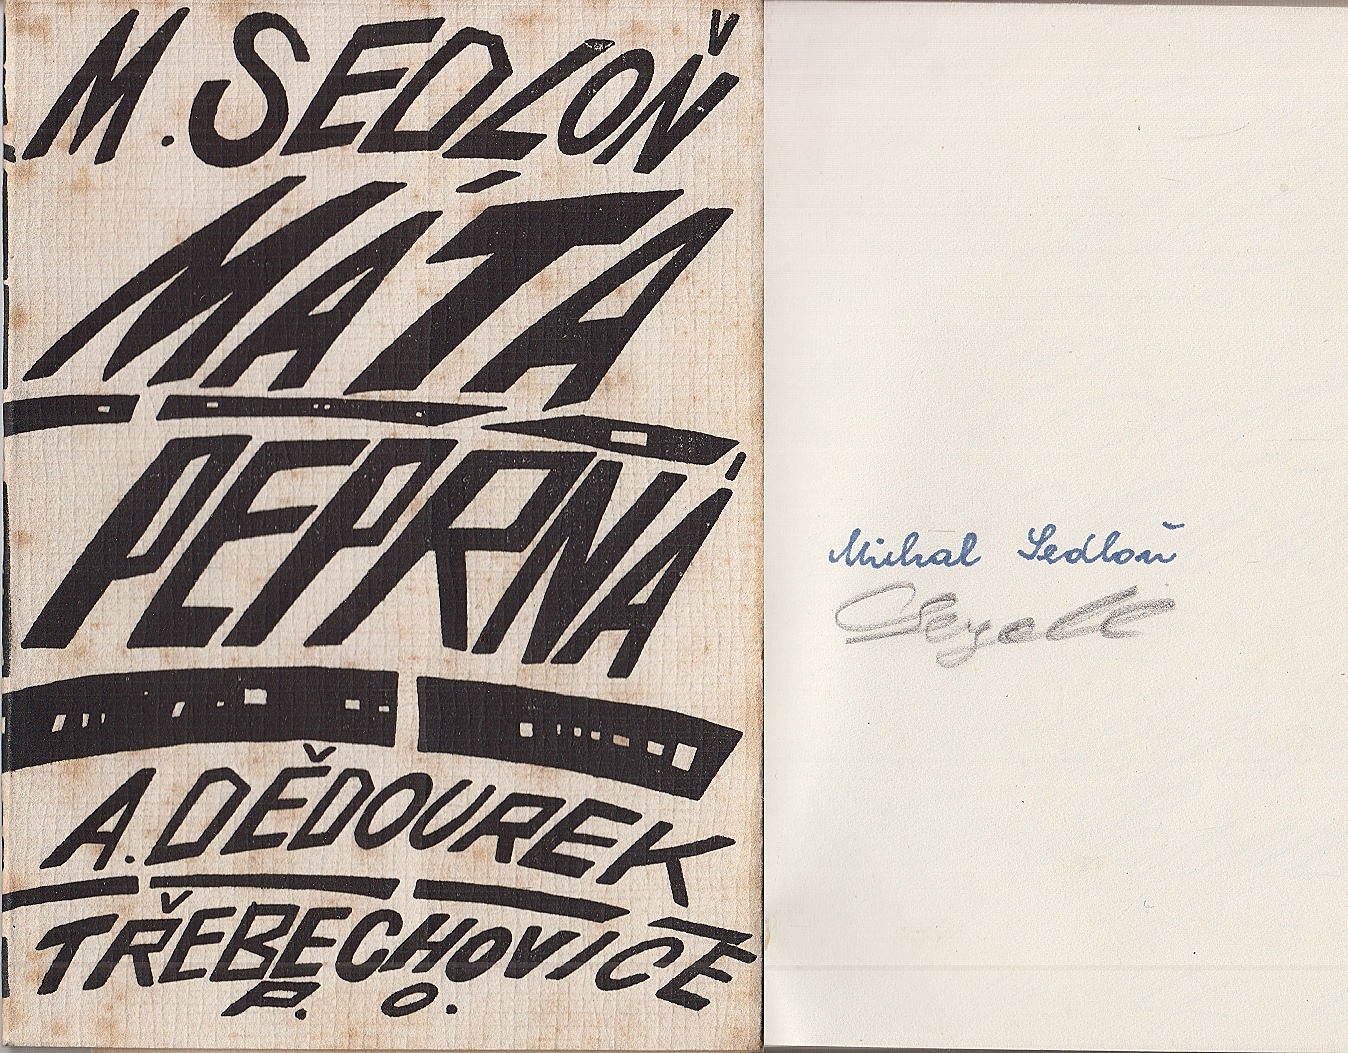 M. SEDLOŇ
MÁTA
PEPRNÁ
A. DĚDOUREK
TŘEBECHOVICE
P. O.
Michal Sedloň